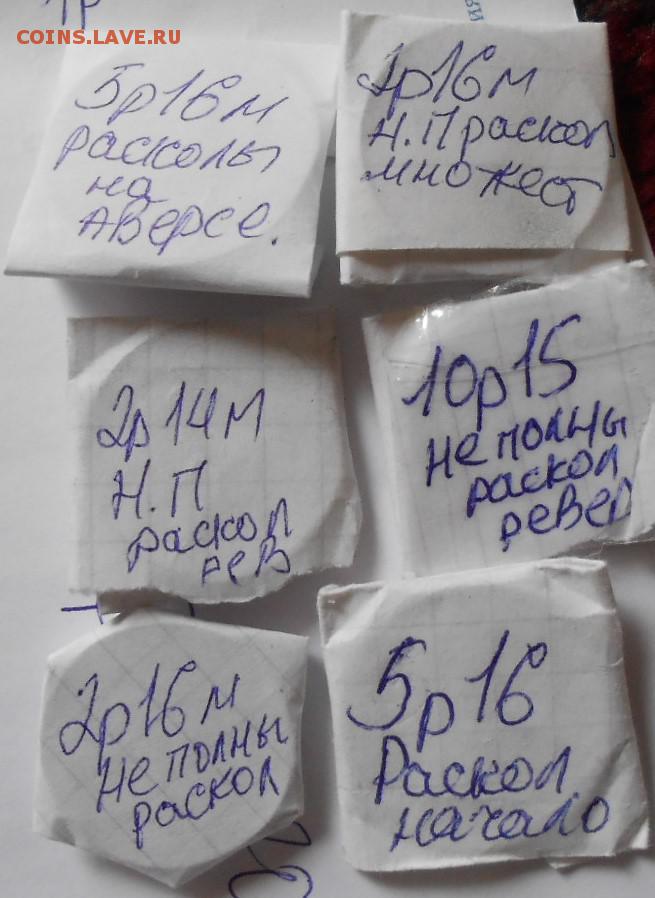 1р
COINS.LAVE.RU
5р16м
расколы
на
аверсе.
16м
Н.П раскол
множест
2р14м
Н.П
раскол
рев
10р15
не полны
раскол
ревер
2р16м
не полны
раскол
5р16
Раскол
начало